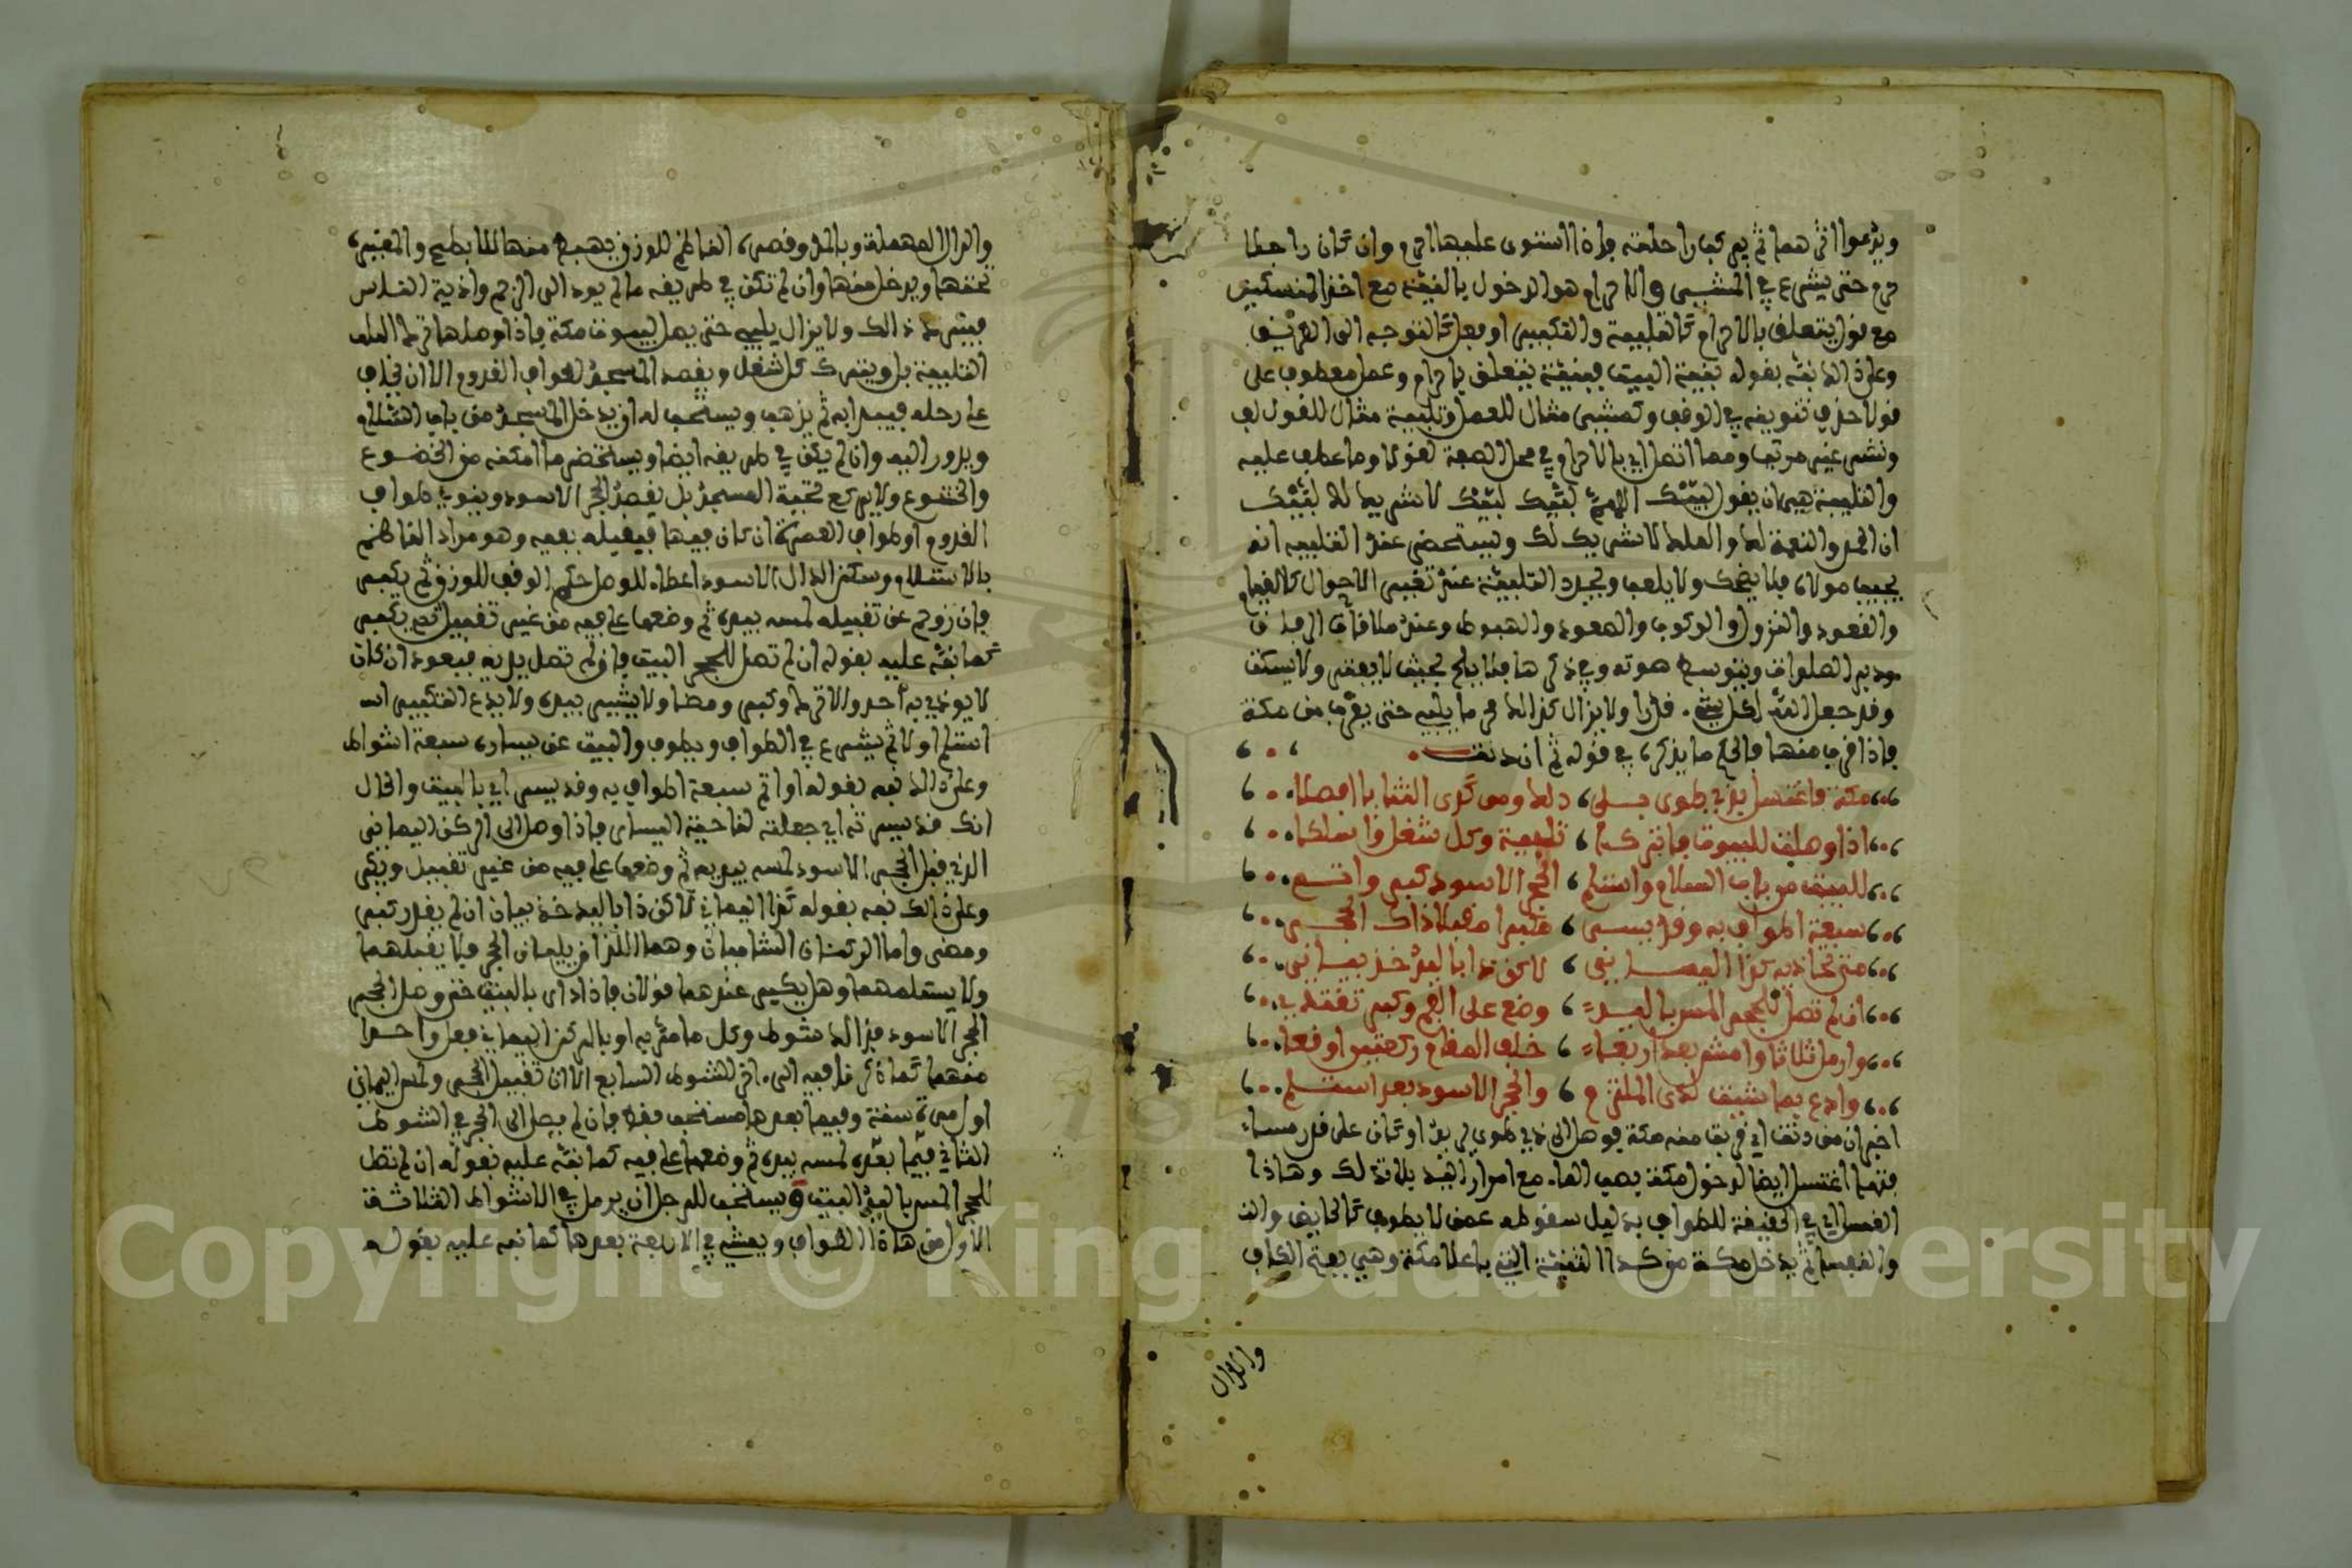 ويدعوا اثرهما ثم يركب راحلته فإذا استوى عليها احرم وان كان راجلا
حرم حتى يشرع في المشي والاحرام هو الدخول بالنية مع احد المنسكين
مع قول يتعلق بالاحرام كالتلبية والتكبير او فعل كالتوجه الى الطريق
وعلى ذالك نبه بقوله بنية البيت فبنية يتعلق باحرام وعمل معطوف على
قول حذف تنوينه في الوقف وكمشي مثال للعمل وتلبية مثال للقول لف
ونشر غير مرتب ومما اتصل اي بالاحرام في محل الصفة لقول وما عطف عليه
والتلبية هي ان يقول لبيك اللهم لبيك لبيك لا شريك لك لبيك
ان الحمد والنعمة لك والملك لا شريك لك ويستحضر عند التلبية انه
يجيب مولاه فلا يضحك ولا يلعب وتجدد التلبية عند تغيير الاحوال كالقيام
والقعود والنزول والركوب والصعود والهبوط وعند ملاقاة الرفاق
ودبر الصلوات ويتوسط صوته وفي ذكرها فلا يلح بحيث لا يفتر ولا يسكت
وقد جعل الله لكل شيء قدرا ولا يزال كذالك محرما يلبي حتى يقرب من مكة
فاذا قرب منها فالحكم ما يذكره في قوله ثم ان دنت
مكة فاغتسل بذي طوى بلا دلك ومن كدى الثنايا ادخلا
اذا وصلت للبيوت فاتركا تلبية وكل شغل واسلكا
للبيت من باب السلام واستلم الحجر الاسود كبر واتم
سبعة اطواف به وقد يسر مكبرا مقبلا ذاك الحجر
متى تحاذيه كذا اليماني لاكن ذا باليد خذ بياني
ان لم تصل للحجر المس باليد وضع على الفم وكبر تقتد
وارمل ثلاثا وامش بعد اربعا خلف المقام ركعتين اوقعا
وادع بما شئت لدى الملتزم والحجر الاسود بعد استلم
اخبر ان من دنت اي قربت منه مكة فوصل الى ذي طوى او كان على قدر مساء
فتها اغتسل ايضا لدخول مكة بصب الماء مع امرار اليد بلا تدلك وهاذا
الغسل اي في الحقيقة للطواف بدليل سقوطه عمن لا يطوف كالحايض والنفـ
والنفساء ثم يدخل مكة من كداء الثنية التي باعلا مكة وهي بفتح الكاف
والدال
والدال المهملة وبالمد وقصره الناظم للوزن يهبط منها للابطح والمقبرة
تحتها ويدخل منها وان لم تكن في طريقه ما لم يود الى الزحم واذية الناس
فيترك ذالك ولا يزال يلبي حتى يصل لبيوت مكة فاذا وصلها ترك الملف
التلبية بل ويترك كل شغل ويقصد المسجد لطواف القدوم الا ان يخاف
على رحله فيبدا به ثم يذهب ويستحب له ان يدخل المسجد من باب السلام
ويدور اليه وان لم يكن في طريقه ايضا ويستحضر ما امكنه من الخضوع
والخشوع ولا يركع تحية المسجد بل يقصد الحجر الاسود وينوي طواف
القدوم او طواف العمرة ان كان فيها فيقبله بفيه وهو مراد الناظم
بالاستلام وسكن الدال الاسود اعطاء للوصل حكم الوقف للوزن ثم يكبر
فان زوحم عن تقبيله لمسه بيده ثم وضعها على فيه من غير تقبيل ثم يكبر
كما نبه عليه بقوله ان لم تصل للحجر البيت فان لم تصل يد به فبعود ان كان
لا يوذي به أحد والا ترك وكبر ومضا ولا يشير بيده ولا يدع التكبير
استلم او لا ثم يشرع في الطواف ويطوف والبيت عن يساره سبعة اشواط
وعلى ذالك نبه بقوله او اتم سبعة اطواف به وقد يسر اي بالبيت والحال
انك قد يسرته اي جعلته لناحية اليسار فاذا وصل الى الركن اليماني
الذي قبل الحجر الاسود لمسه بيده ثم وضعها على فيه من غير تقبيل ويكبر
وعلى ذالك نبه بقوله كذا اليماني لاكن ذا باليد خذ بيان ان لم يقدر كبر
ومضى واما الركنان الشاميان وهما اللذان يليان الحجر فلا يقبلهما
ولا يستلمهما وهل يكبر عندهما قولان فاذا دار بالبيت حتى وصل الحجر
الحجر الاسود فذالك شوط وكل ما مر به او بالركن اليماني فعل واحدا
منهما كما ذكرنا فيه الى اخر الشوط السابع الا ان تقبيل الحجر ولمس اليماني
اول مرة سنة وفيما بعدها مستحب فقط فان لم يصل الى الحجر في الشوط
الثاني فيما بعده لمسه بيده ثم وضعها على فيه كما نبه عليه بقوله ان لم تصل
للحجر المس باليد البيت ويستحب للرجل ان يرمل في الاشواط الثلاثة
الاول من هاذا الطواف ويمشي في الاربعة بعدها كما نبه عليه بقوله
Copyright © King Saud University